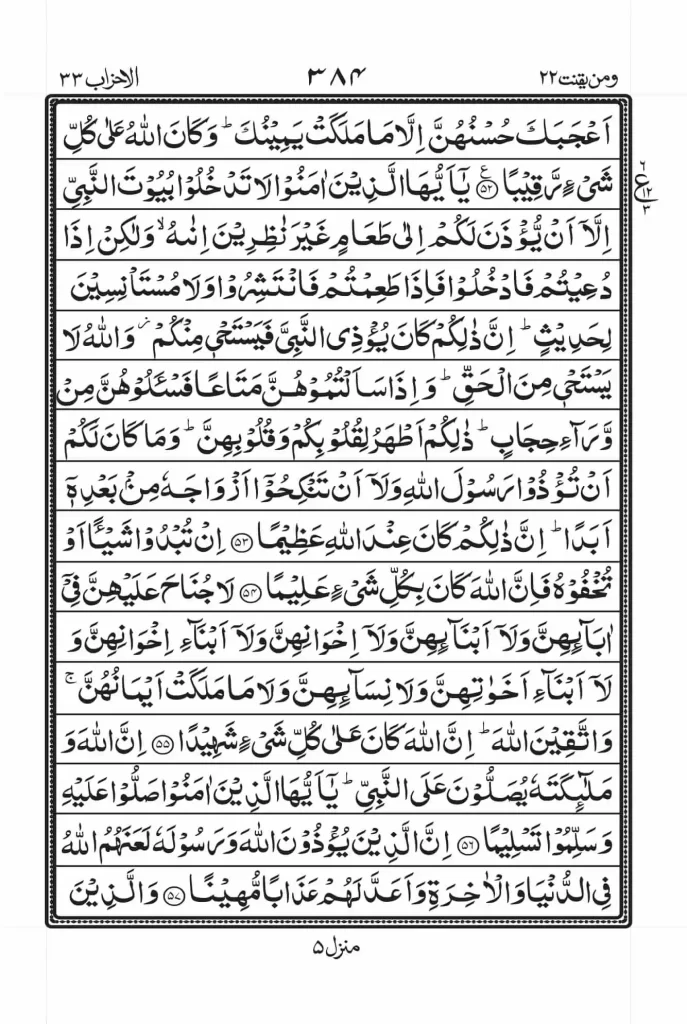 ومن یقنت ۲۲ ۳۸۴ الاحزاب ۳۳
اَعۡجَبَكَ حُسۡنُهُنَّ اِلَّا مَا مَلَكَتۡ يَمِيۡنُكَ‌ ؕ وَكَانَ اللّٰهُ عَلٰى كُلِّ
شَىۡءٍ رَّقِيۡبًا ﴿۵۲﴾ ع يٰۤـاَيُّهَا الَّذِيۡنَ اٰمَنُوۡا لَا تَدۡخُلُوۡا بُيُوۡتَ النَّبِىِّ
ع ۶ ۱۲ ۳
اِلَّاۤ اَنۡ يُّؤۡذَنَ لَـكُمۡ اِلٰى طَعَامٍ غَيۡرَ نٰظِرِيۡنَ اِنٰٮهُ ۙ وَلٰـكِنۡ اِذَا
دُعِيۡتُمۡ فَادۡخُلُوۡا فَاِذَا طَعِمۡتُمۡ فَانْتَشِرُوۡا وَلَا مُسۡتَاۡنِسِيۡنَ
لِحَـدِيۡثٍ ؕ اِنَّ ذٰلِكُمۡ كَانَ يُؤۡذِى النَّبِىَّ فَيَسۡتَحۡىٖ مِنۡكُمۡ ز وَاللّٰهُ لَا
يَسۡتَحۡىٖ مِنَ الۡحَـقِّ ؕ وَاِذَا سَاَلۡتُمُوۡهُنَّ مَتَاعًا فَسۡـَٔـلُوۡهُنَّ مِنۡ
وَّرَآءِ حِجَابٍ ؕ ذٰلِكُمۡ اَطۡهَرُ لِقُلُوۡبِكُمۡ وَقُلُوۡبِهِنَّ ؕ وَمَا كَانَ لَـكُمۡ
اَنۡ تُؤۡذُوۡا رَسُوۡلَ اللّٰهِ وَلَاۤ اَنۡ تَـنۡكِحُوۡۤا اَزۡوَاجَهٗ مِنۡۢ بَعۡدِهٖۤ
اَبَدًا ؕ اِنَّ ذٰلِكُمۡ كَانَ عِنۡدَ اللّٰهِ عَظِيۡمًا ﴿۵۳﴾ اِنۡ تُبۡدُوۡا شَيۡـًٔـا اَوۡ
تُخۡفُوۡهُ فَاِنَّ اللّٰهَ كَانَ بِكُلِّ شَىۡءٍ عَلِيۡمًا ﴿۵۴﴾ لَا جُنَاحَ عَلَيۡهِنَّ فِىۡۤ
اٰبَآٮِٕهِنَّ وَلَاۤ اَبۡنَآٮِٕهِنَّ وَلَاۤ اِخۡوَانِهِنَّ وَلَاۤ اَبۡنَآءِ اِخۡوَانِهِنَّ وَ
لَاۤ اَبۡنَآءِ اَخَوٰتِهِنَّ وَلَا نِسَآٮِٕهِنَّ وَلَا مَا مَلَـكَتۡ اَيۡمَانُهُنَّ ۚ
وَاتَّقِيۡنَ اللّٰهَ ؕ اِنَّ اللّٰهَ كَانَ عَلٰى كُلِّ شَىۡءٍ شَهِيۡدًا ﴿۵۵﴾ اِنَّ اللّٰهَ وَ
مَلٰٓٮِٕكَتَهٗ يُصَلُّوۡنَ عَلَى النَّبِىِّ ؕ يٰۤـاَيُّهَا الَّذِيۡنَ اٰمَنُوۡا صَلُّوۡا عَلَيۡهِ
وَسَلِّمُوۡا تَسۡلِيۡمًا ﴿۵۶﴾ اِنَّ الَّذِيۡنَ يُؤۡذُوۡنَ اللّٰهَ وَرَسُوۡلَهٗ لَعَنَهُمُ اللّٰهُ
فِى الدُّنۡيَا وَالۡاٰخِرَةِ وَاَعَدَّ لَهُمۡ عَذَابًا مُّهِيۡنًا ﴿۵۷﴾ وَالَّذِيۡنَ
منزل ۵